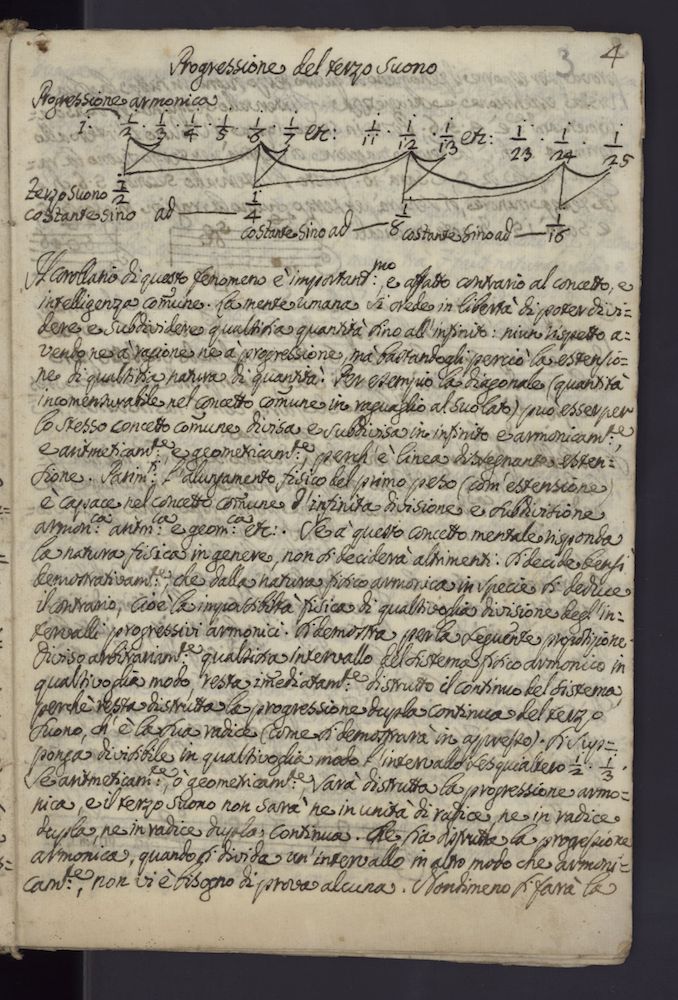 3 4
Progressione del terzo suono
Progressione armonica
1. 1/2 1/3 · 1/4 · 1/5 1/6 · 1/7 etc: 1/11 · 1/12 · 1/13 etc: 1/23 · 1/24 · 1/25
Terzo suono 1/2
costante sino ad — 1/4 costante sino ad — 1/8 costante sino ad — 1/16
Il Corollario di questo fenomeno è important.mo, e affatto contrario al concetto, e
intelligenza comune. La mente umana si crede in libertà di poter divi=
dere e subdividere qualsisia quantità sino all'infinito: niun rispetto a=
vendone a ragione ne à progressione, mà bastandogli perciò la estensio=
ne di qualsisia natura di quantità. Per esempio la diagonale (quantità
incomensurabile nel concetto comune in raguaglio al suo lato) può esser per
lo stesso concetto comune divisa e subdivisa in infinito e armonicam.te,
e aritmeticam.te e geometicam.te, perch'è linea dissegnante esten=
sione. Parim.ti l'alungamento fisico del primo peso (com'estensione)
è capace nel concetto comune d'infinita divisione e subdivisione
armon.ca aritm.ca e geom.ca etc:. Se à questo concetto mentale risponda
la natura fisica in genere, non si deciderà altrimenti. Si decide bensì
demostrativam.te, che dalla natura fisico armonica in specie si deduce
il contrario, cioè la impossibiltà fisica di qualsivoglia divisione degl'in=
tervalli progressivi armonici. Si demostra per la seguente propositione.
Diviso arbitrariam.te qualsisia intervallo del sistema fisico armonico in
qualsivoglia modo, resta imediatam.te distrutto il continuo del sistema,
perchè resta distrutta la progressione dupla continua del terzo
suono, ch'è la sua radice (come si demostrarà in appresso). Si sup=
ponga divisibile in qualsivoglia modo l'intervallo sesquialtero 1/2 · 1/3.
Se aritmeticam.te, ò geometicam.te sarà distrutta la progressione armo=
nica, e il terzo suono non sarà ne in unità di radice, ne in radice
dupla, ne in radice dupla continua. Che sia distrutta la progressione
armonica, quando si divida un'intervallo in altro modo che armoni=
cam.te, non vi è bisogno di prova alcuna. Nondimeno si farà la